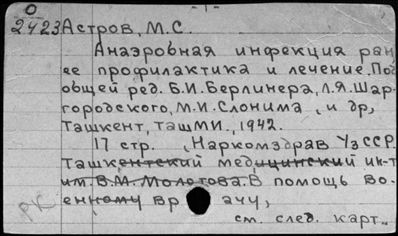 - 1 -
О
2423 Астров, М.С.
Анаэробная инфекция ран,
ее профилактика и лечение. Под
общей ред. Б.И. Берлинера, Л.Я. Шар-
городского, М.И. Слонима, и др,
Ташкент, ТашМИ., 1942.
17 стр. (Наркомздрав УзССР.
Ташкентский медицинский ин-т
им. В.М. Молотова. В помощь во-
енному вр ачу,
РК
см. след. карт..